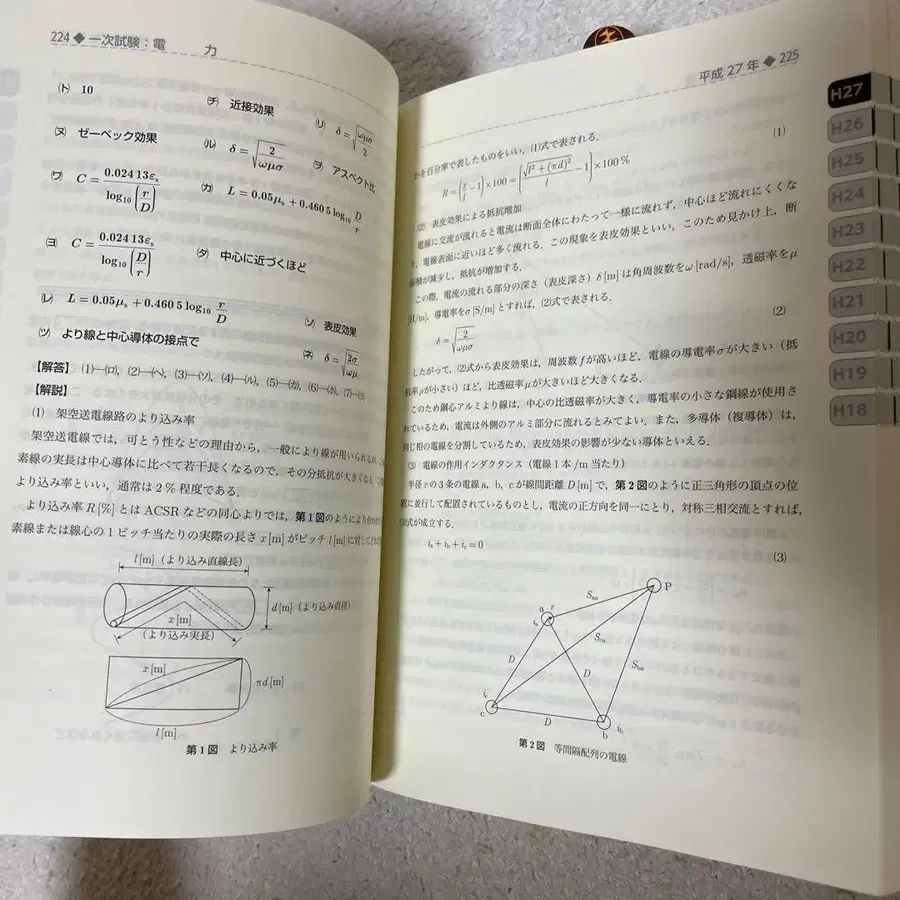 224 ◆ 一次試験：電　力
(ト) 10
(チ) 近接効果
(リ) δ = √(ωμσ/2)
(ヌ) ゼーベック効果
(ル) δ = √(2/ωμσ)
(ヲ) アスペクト比
(ワ) C = 0.024 13ε_s / log₁₀(r/D)
(カ) L = 0.05μ_s + 0.460 5 log₁₀ D/r
(ヨ) C = 0.024 13ε_s / log₁₀(D/r)
(タ) 中心に近づくほど
(レ) L = 0.05μ_s + 0.460 5 log₁₀ r/D
(ソ) 表皮効果
(ツ) より線と中心導体の接点で
(ネ) δ = √(2σ/ωμ)
【解答】 (1)―(ロ), (2)―(ヘ), (3)―(ソ), (4)―(ル), (5)―(カ), (6)―(ホ), (7)―(ヨ)
【解説】
(1) 架空送電線路のより込み率
架空送電線では，可とう性などの理由から，一般により線が用いられるが，
素線の実長は中心導体に比べて若干長くなるので，その分抵抗が大きくなる．
より込み率といい，通常は 2 % 程度である．
より込み率 R [%] とは ACSR などの同心よりでは，第 1 図のようにより合わ
素線または線心の 1 ピッチ当たりの実際の長さ x [m] がピッチ l [m] に対して
l [m]（より込み直線長）
d [m]（より込み直径）
x [m]
（より込み実長）
x [m]
πd [m]
l [m]
第 1 図　より込み率
平成 27 年 ◆ 225
を百分率で表したものをいい，(1)式で表される．
R = (x/l − 1) × 100 = (√(l² + (πd)²)/l − 1) × 100 %
(1)
(2) 表皮効果による抵抗増加
電線に交流が流れると電流は断面全体にわたって一様に流れず，中心ほど流れにくくな
り，電線表面に近いほど多く流れる．この現象を表皮効果といい，このため見かけ上，断
面積が減少し，抵抗が増加する．
この際，電流の流れる部分の深さ（表皮深さ）δ [m] は角周波数を ω [rad/s]，透磁率を μ
[H/m]，導電率を σ [S/m] とすれば，(2)式で表される．
δ = √(2/ωμσ)
(2)
したがって，(2)式から表皮効果は，周波数 f が高いほど，電線の導電率 σ が大きい（抵
抗率 ρ が小さい）ほど，比透磁率 μ が大きいほど大きくなる．
このため鋼心アルミより線は，中心の比透磁率が大きく，導電率の小さな鋼線が使用さ
れているため，電流は外側のアルミ部分に流れるとみてよい．また，多導体（複導体）は，
同じ相の電線を分割しているため，表皮効果の影響が少ない導体といえる．
(3) 電線の作用インダクタンス（電線 1 本/m 当たり）
半径 r の 3 条の電線 a，b，c が線間距離 D [m] で，第 2 図のように正三角形の頂点の位
置に並行して配置されているものとし，電流の正方向を同一にとり，対称三相交流とすれば，
(3)式が成立する．
i_a + i_b + i_c = 0
(3)
P
S_aa
a
r
i_a
S_ca
D
D
S_ba
i_c
c
D
b
i_b
第 2 図　等間隔配列の電線
H27
H26
H25
H24
H23
H22
H21
H20
H19
H18